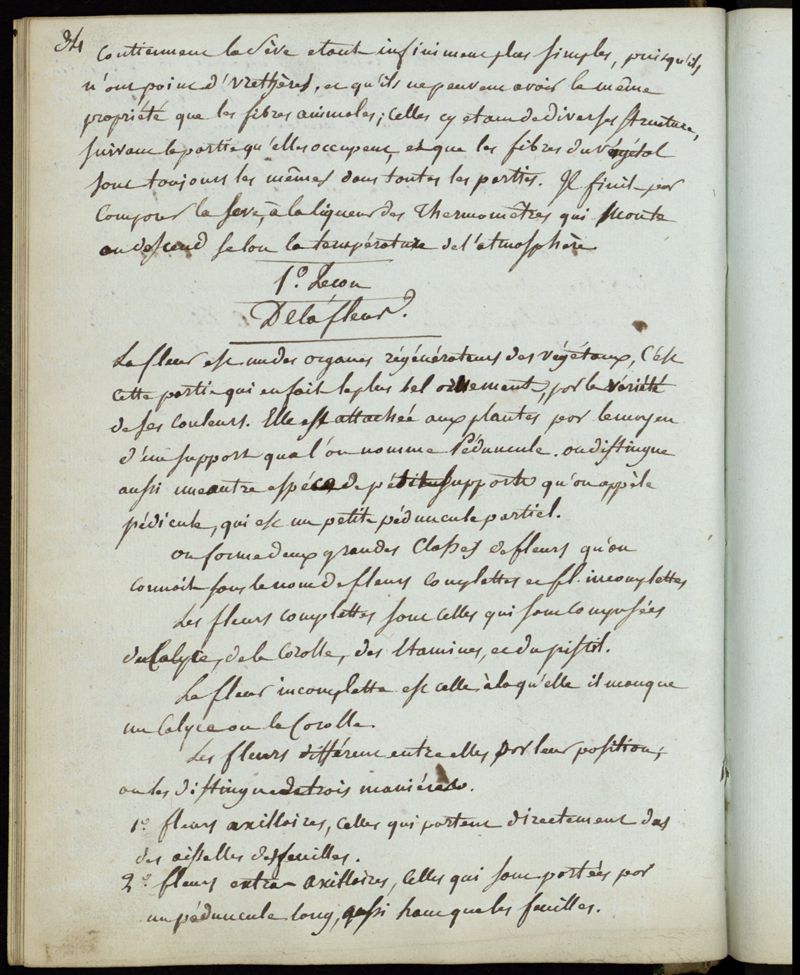 34
Contiennent la Sève etant infiniment plus simples, puisqu'ils
n'ont point d'Urethères, et qu'ils ne peuvent avoir la même
propriété que les fibres animales; Celles cy etant de diverses structure,
suivant la partie qu'elles occupent, et que les fibres du végétal
sont toujours les mêmes dans toutes les parties. Il finit par
Comparer la seve, à la liqueur des Thermomètres qui Monte
ou descend selon la température de l'atmosphère
1.º Lecon
De la fleur.
La fleur est un des organes régénérateurs des végétaux, C'est
cette partie qui en fait le plus bel ornement, par la variété
de ses Couleurs. Elle est attachée aux plantes par le moyen
d'un support que l'on nomme Péduncule. on distingue
aussi une autre espéce de pétits supports qu'on appèle
pédicule, qui est un petite péduncule partiel.
on forme deux grandes Classes de fleurs qu'on
connoit sous le nom de fleurs Complettes et fl. incomplettes
Les fleurs complettes sont celles qui sont composées
du Calyce, de la Corolle, des Etamines, et du pistil.
La fleur incomplette est celle à laqu'elle il manque
un Calyce ou la Corolle.
Les fleurs différent entre elles par leur position,
on les distingue de trois maniéres.
1.º fleurs axillaires, Celles qui partent directement des
des aisselles des feuilles.
2.º fleurs extra-axillaires, Celles qui sont portées par
un péduncule long, aussi haut que les feuilles.